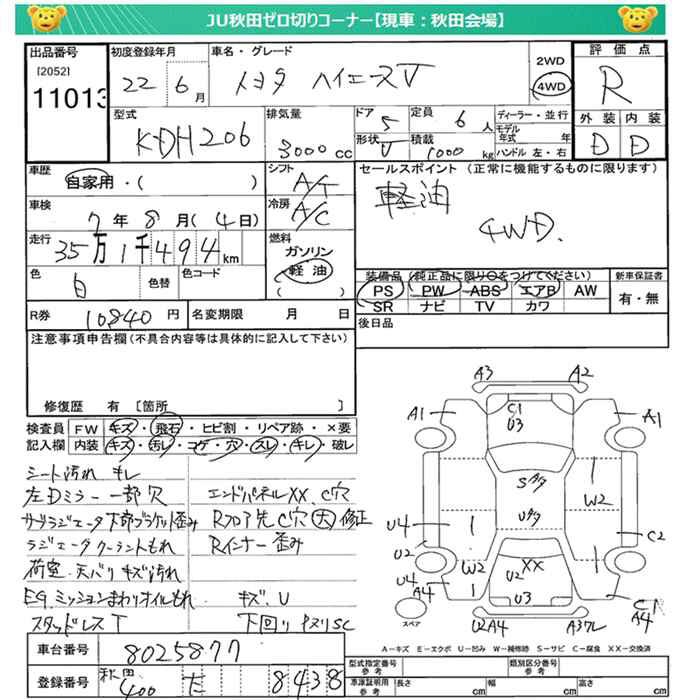 JU秋田ゼロ切りコーナー【現車：秋田会場】
出品番号
[2052]
11013
初度登録年月
22 6月
車名・グレード
トヨタ ハイエースV
2WD
4WD
評価点
R
外装 内装
D D
型式
KDH206
排気量
3000cc
ドア
5
定員
6人
形状
V
積載
1000kg
ディーラー・並行
モデル年式 年
ハンドル 左・右
車歴
自家用・( )
シフト
A/T
車検
7年8月(4日)
冷房
A/C
走行
35万1千494km
燃料
ガソリン
軽油
( )
色
白
色替
色コード
セールスポイント (正常に機能するものに限ります)
軽油
4WD.
装備品 (純正品に限り○をつけてください)
PS PW ABS エアB AW
SR ナビ TV カワ
新車保証書
有・無
R券 10840円
名変期限 月 日
後日品
注意事項申告欄(不具合内容等は具体的に記入して下さい)
修復歴 有 [箇所 ]
検査員記入欄
FW キズ・飛石・ヒビ割・リペア跡・×要
内装 キズ・汚レ・コゲ・穴・スレ・キレ・破レ
シート汚れ キレ
左Dミラー一部穴 エンドパネルXX、C穴
サブラジエータ下部ブラケット歪み Rフロア先C穴(大)修正
ラジエータクーラントもれ Rインナー歪み
荷室、天バリキズ汚れ
Eg.ミッションまわりオイルもれ キズ、U
スタッドレスT 下回りサビSC
車台番号 8025877
登録番号 秋田 400 た 8438
A3 A2
A1 C1 A1
U3
SA/7
W2
U4 UA/7
C2
U2 W2 XX
U4 U2
A4 U3 C1
A4
スペア
U2A4 A3ワレ
A－キズ E－エクボ U－凹み W－補修跡 S－サビ C－腐食 XX－交換済
型式指定番号
参考
類別区分番号
参考
車庫証明用
参考
長さ cm
幅 cm
高さ cm